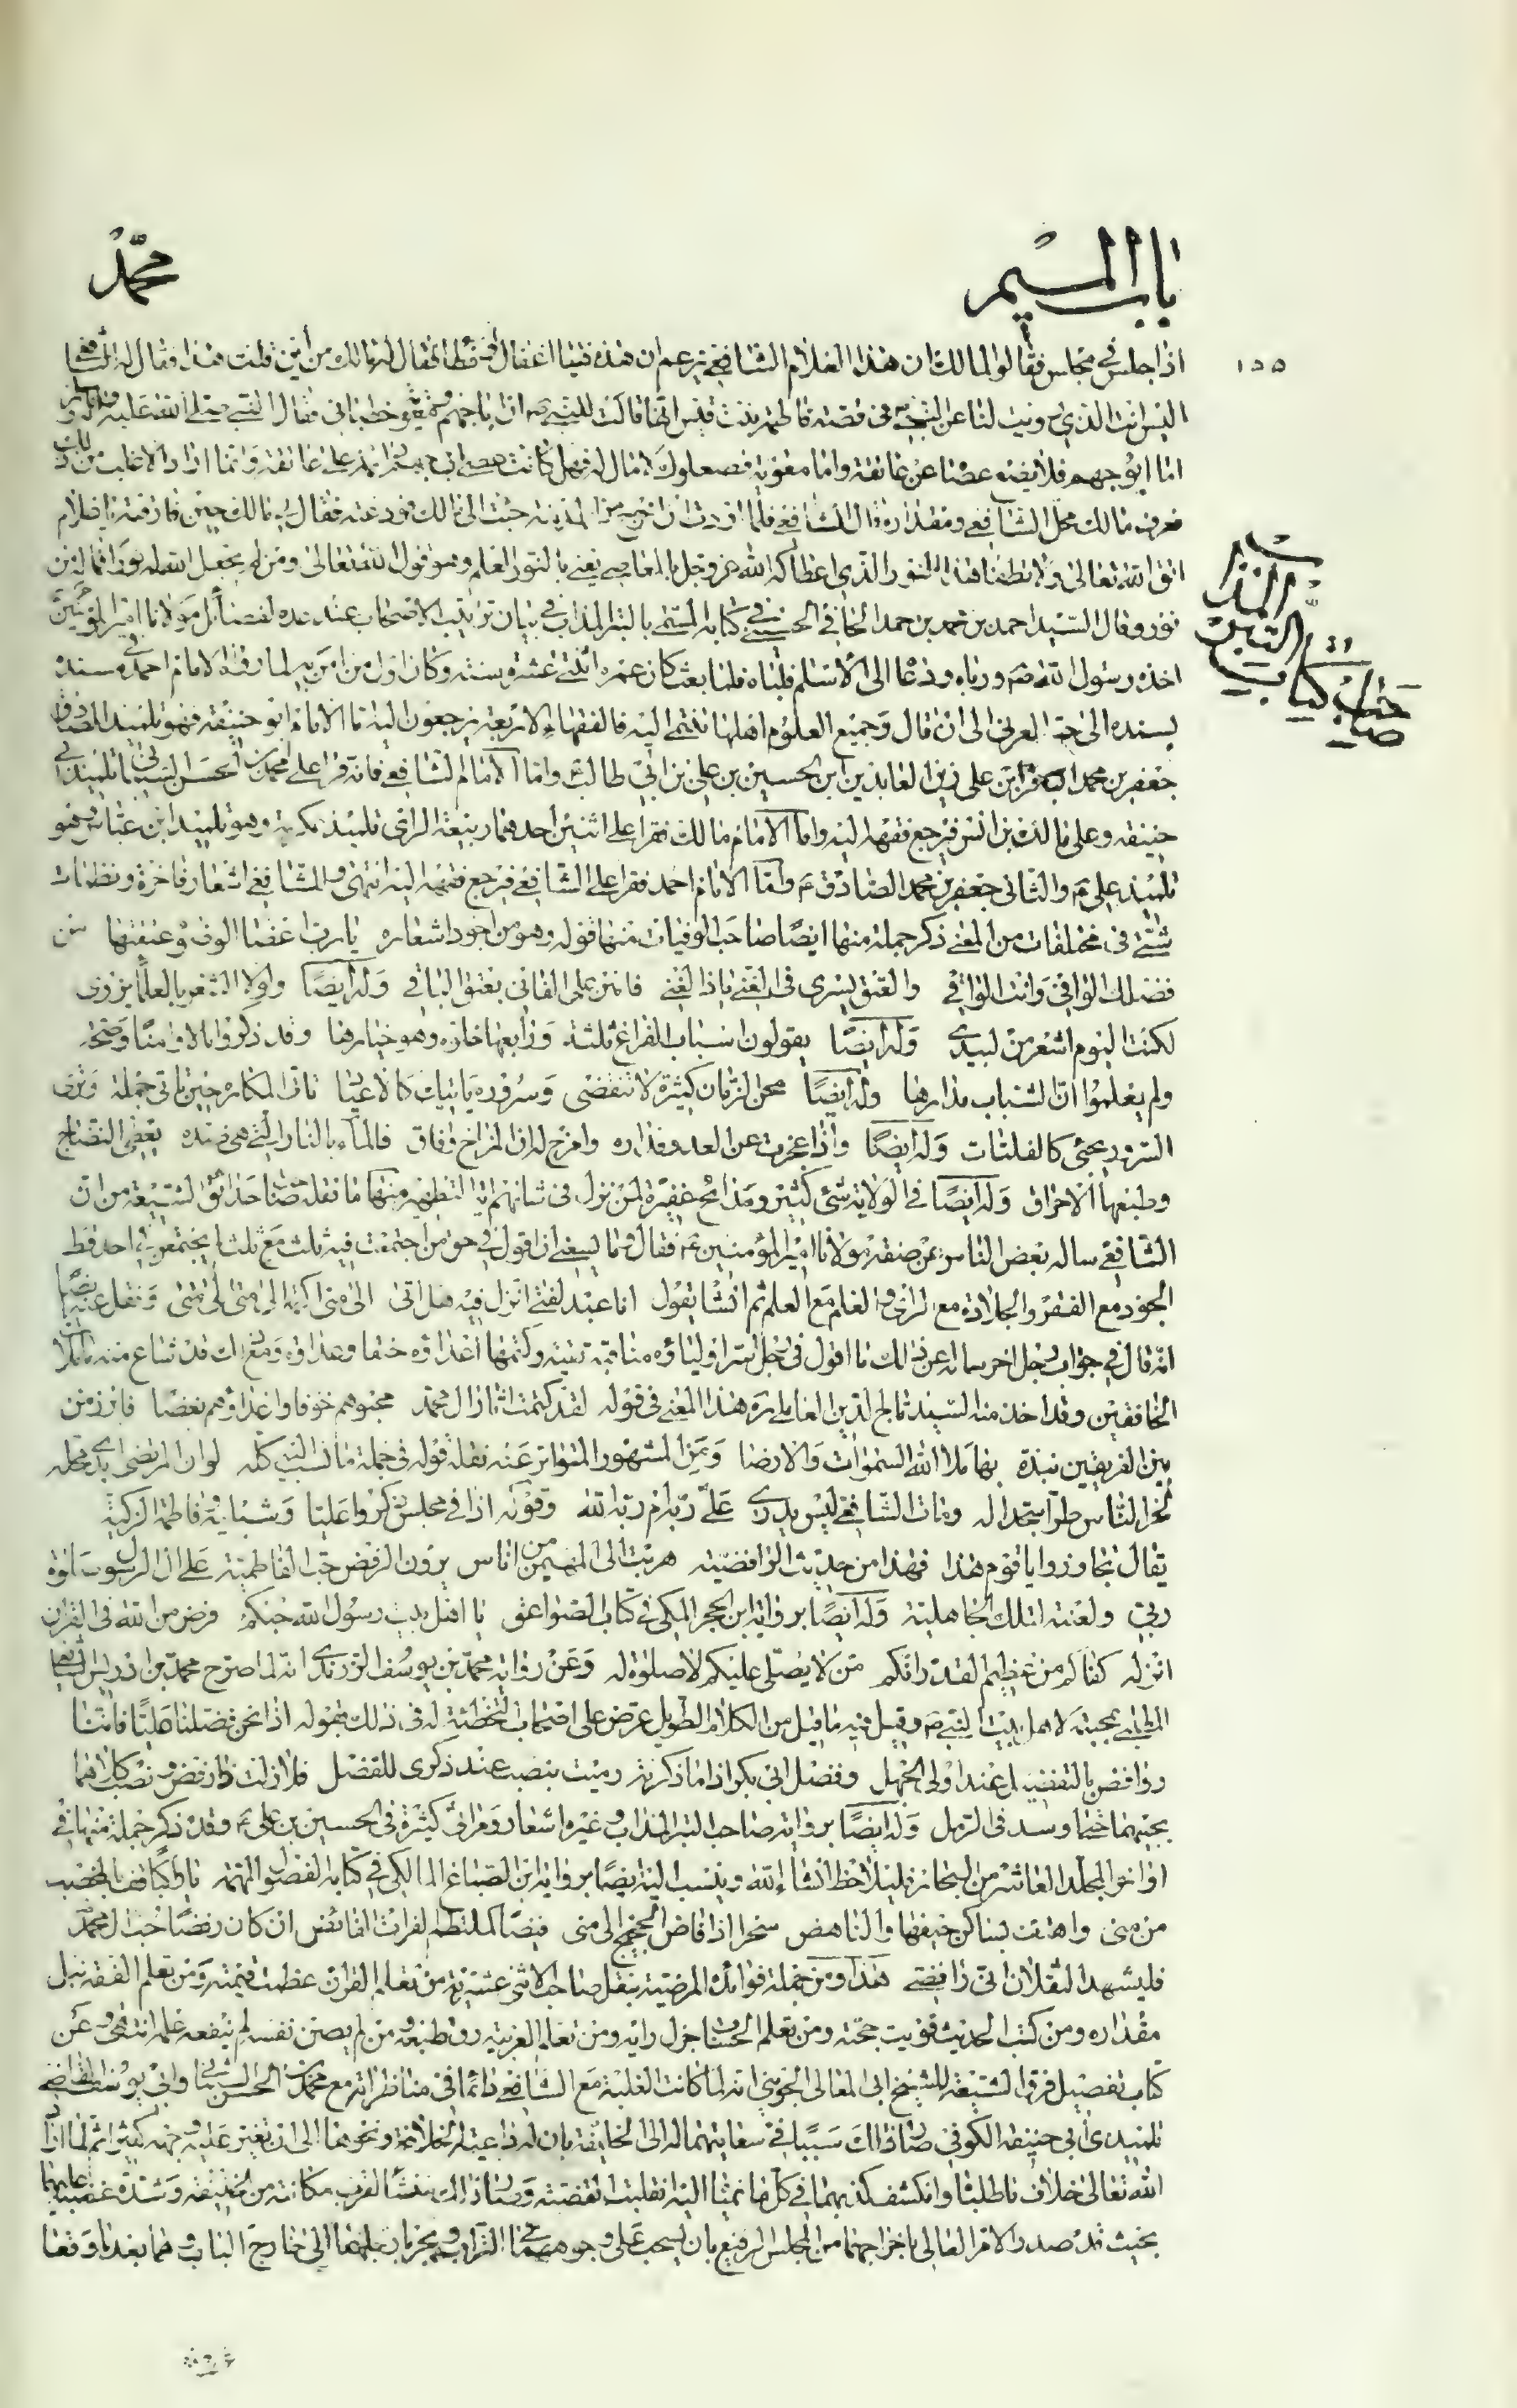 باب الميم
محمد
١٥٥
اذا جلس في مجلس فقالوا لمالك ان هذا الغلام الشافعي يزعم ان هذه فتيا اغفال او خطا فقال له مالك من اين قلت هذا فقال له الشافعي
اليس انت الذي رويت لنا عن النبي ص في قصة فاطمة بنت قيس انها قالت للنبي ص ان ابا جهم ومعوية خطباني فقال النبي صلى الله عليه واله
اما ابو جهم فلا يضع عصاه عن عاتقه واما معوية فصعلوك لا مال له فهل كانت عصا ابي جهم على عاتقه وانما اراد الاغلب من ذلك
فعرف مالك محل الشافعي ومقداره قال الشافعي فلما اردت ان اخرج من المدينة جئت الى مالك فودعته فقال لي مالك حين فارقته يا غلام
اتق الله تعالى ولا تطفئ هذا النور الذي اعطاكه الله عز وجل بالمعاصي يعني بالنور العلم وهو قول الله تعالى ومن لم يجعل الله له نورا فما له من
نور وقال السيد احمد بن محمد بن احمد الخافي الحسيني في كتابه المسمى بالتبر المذاب في بيان ترتيب الاصحاب عند عده لفضائل مولانا امير المؤمنين
صاحب كتاب التبر المذاب
اخذه رسول الله ص ورباه ودعا الى الاسلام فلباه فلما بعث كان عمره اثنتي عشرة سنة وكان اول من امن به لما رواه الامام احمد في مسنده
بسنده الى حبة العرني الى ان قال وجميع العلوم اهلها تنتمي اليه فالفقهاء الاربعة يرجعون اليه اما الامام ابو حنيفة فهو تلميذ الصادق
جعفر بن محمد الباقر ابن على زين العابدين ابن الحسين بن علي بن ابي طالب ع واما الامام الشافعي فانه قرا على محمد بن الحسن الشيباني تلميذ ابي
حنيفه وعلى مالك بن انس فيرجع فقهه اليه واما الامام مالك فقرا على اثنين احدهما ربيعة الراى تلميذ عكرمة وهو تلميذ ابن عباس وهو
تلميذ علي ع والثاني جعفر بن محمد الصادق ع واما الامام احمد فقرا على الشافعي فيرجع فقهه اليه انتهى وللشافعي اشعار فاخرة ونظمات
شتى في مختلفات من المعنى ذكر جملة منها ايضا صاحب الوفيات منها قوله وهو من اجود اشعاره يا رب اعضاء الوضوء عتقتها من
فضلك الوافي وانت الواقي والعتق يسرى في الغنى يا ذا الغنى فامنن على الفاني بعتق الباقي وله ايضا ولولا الشعر بالعلماء يزرى
لكنت اليوم اشعر من لبيد وله ايضا يقولون اسباب الفراغ ثلثة ورابعها خلوه وهو خيارها وقد ذكروا مالا وامنا وصحة
ولم يعلموا ان الشباب مدارها وله ايضا محن الزمان كثيرة لا تنقضى وسروره ياتيك كالاعياد تاتى المكاره حين تاتى جملة وترى
السرور يجئ كالفلتات وله ايضا واذا عجزت عن العدو فداره وامزح له ان المزاح وفاق فالماء بالنار التي هي ضده يعطى النضاج
وطبعها الاحراق وله ايضا في الولاية شئ كثير ومدائح غفيرة لمن نزل في شانهم اية التطهير منها ما نقله صاحب حدائق الشيعة من ان
الشافعي ساله بعض الناس عن صفة مولانا امير المؤمنين ع فقال وما يسعني ان اقول في حق من اجتمعت فيه ثلث مع ثلث لا يجتمعن في احد قط
الجود مع الفقر والجلادة مع الراى والعلم مع العلم ثم انشا يقول انا عبد لفتى انزل فيه هل اتى الى متى اكتمه الى متى الى متى ونقل عنه ايضا
انه قال في جواب رجل اخر ساله عن ذلك ما اقول في رجل اسر اولياؤه مناقبه تقية وكتمها اعداؤه حنقا وعداوة ومع ذلك قد شاع منه ما ملا
الخافقين وقد اخذ منه السيد تاج الدين العاملي ره هذا المعنى في قوله لقد كتمت اثار ال محمد محبوهم خوفا واعداؤهم بغضا فابرز من
بين الفريقين نبذة بها ملا الله السموات والارضا ومن المشهور المتواتر عنه نقله قوله في جملة ما نسب اليه كله لو ان المرتضى ابدى محله
لخر الناس طرا سجدا له ومات الشافعي ليس يدرى علي ربه ام ربه الله وقوله اذا في مجلس ذكروا عليا وشبليه وفاطمة الزكية
يقال تجاوزوا يا قوم هذا فهذا من حديث الرافضيه هربت الى المهيمن من اناس يرون الرفض حب الفاطمية على ال الرسول صلوة
ربي ولعنته لتلك الجاهلية وله ايضا برواية ابن الحجر المكي في كتاب الصواعق يا اهل بيت رسول الله حبكم فرض من الله في القران
انزله كفاكم من عظيم القدر انكم من لا يصلى عليكم لا صلوة له وعن رواية محمد بن يوسف الزرندى انه لما صرح محمد بن ادريس الشافعي
المطلبي بمحبته لاهل بيت النبي ص وقيل فيه ما قيل من الكلام الطويل عرض على اصحاب التخطئة له في ذلك بقوله اذا نحن فضلنا عليا فاننا
روافض بالتفضيل عند اولى الجهل وفضل ابي بكر اذا ما ذكرته رميت بنصب عند ذكرى للفضل فلا زلت ذا رفض ونصب كلاهما
بحبهما حتى اوسد في الرمل وله ايضا برواية صاحب التبر المذاب وغيره اشعار ومراثي كثيرة في الحسين بن علي ع وقد ذكر جملة منها في
اواخر المجلد العاشر من البحار فليلاحظ انشاء الله وينسب اليه ايضا برواية ابن الصباغ المالكي في كتابه الفصول المهمة يا راكبا قف بالمحصب
من منى واهتف بساكن خيفها والناهض سحرا اذا فاض الحجيج الى منى فيضا كملتطم الفرات الفائض ان كان رفضا حب ال محمد
فليشهد الثقلان اني رافضي هذا ومن جملة فوائده المرضية بنقل صاحب الاثني عشرية من تعلم القران عظمت قيمته ومن تعلم الفقه نبل
مقداره ومن كتب الحديث قويت حجته ومن تعلم الحساب جزل رايه ومن تعلم العربية رق طبعه ومن لم يصن نفسه لم ينفعه علمه انتهى وعن
كتاب تفصيل فرق الشيعة للشيخ ابي المعالى الجويني انه لما كانت الغلبة مع الشافعي دائما في مناظراته مع محمد بن الحسن الشيباني وابي يوسف القاضي
تلميذى ابي حنيفه الكوفي صار ذلك سببا في سعايتهما له الى الخليفة بان له داعية الخلافة ونحوها الى ان تغير عليه وجهه كثيرا ثم لما اراد
الله تعالى خلاف ما طلبا وانكشف كذبهما في كل ما نميا اليه انقلبت القضية وصار ذلك منشأ لقرب مكانته من الخليفة وشدة غضبه عليهما
بحيث قد صدر الامر العالي باخراجهما من المجلس الرفيع بان يسحب على وجوههما التراب ويجر بارجلهما الى خارج الباب وهما بعد ما وقعا